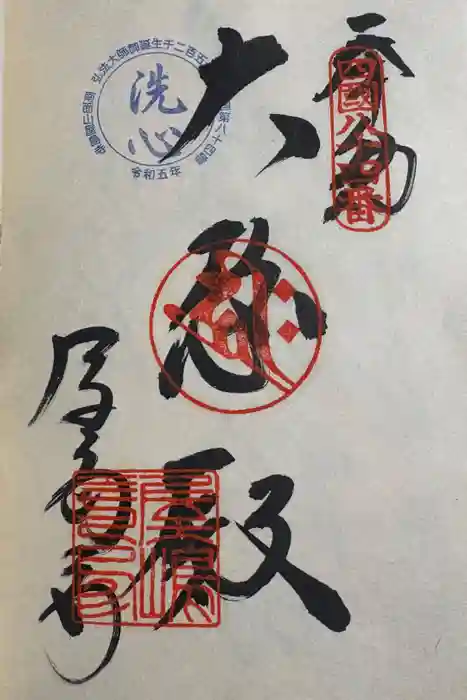 奉納
四國八十四番
大悲殿
屋島寺
弘法大師御誕生千二百五
国第八十四番
洗心
令和五年